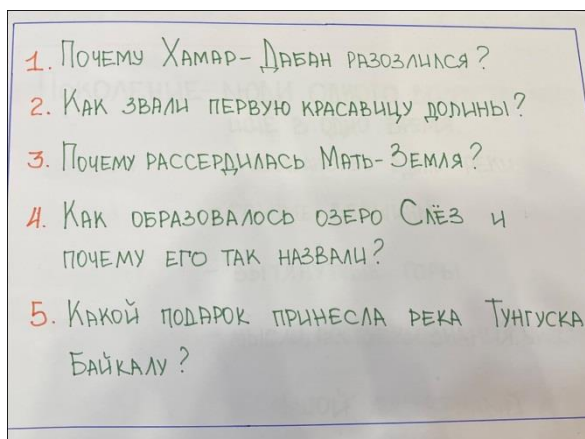 1. Почему Хамар-Дабан разозлился?
2. Как звали первую красавицу долины?
3. Почему рассердилась Мать-Земля?
4. Как образовалось озеро Слёз и
почему его так назвали?
5. Какой подарок принесла река Тунгуска
Байкалу?